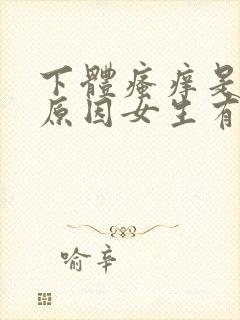 下體瘙痒是
原因女生有
喻辛